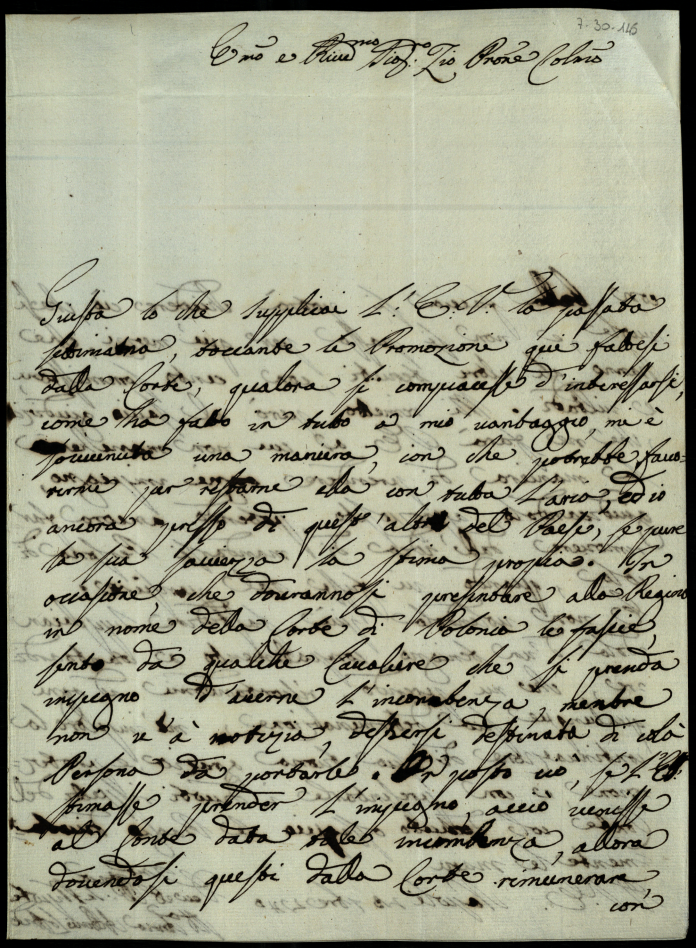 7-30-146
Emo e Revmo Sigr. Zio Prone Colmo
Giusta lo che supplicai l'E.V. la passata
settimana, toccante la Promozione qui fattasi
dalla Corte, qualora si compiacesse d'interessarsi,
come ha fatto in tutto a mio vantaggio, mi è
souuenuta una maniera, con che potrebbe fauo-
rirmi per restarne ella con tutta l'arco, ed io
ancora presso di quest' altri del Paese, se pure
la sua sauiezza la stima propria. In
occasione, che dourannosi presentare alla Regina
in nome della Corte di Polonia le fascie,
sento da qualche Caualiere che si prenda
impegno d'auerne l'incombenza, mentre
non u'à notizia, d'essersi destinata di colà
Persona da portarle. In posto ciò, se l'E.V.
stimasse prender l'impegno, acciò uenisse
al Conte data tale incombenza, allora
douendosi questi dalla Corte rimunerare
con